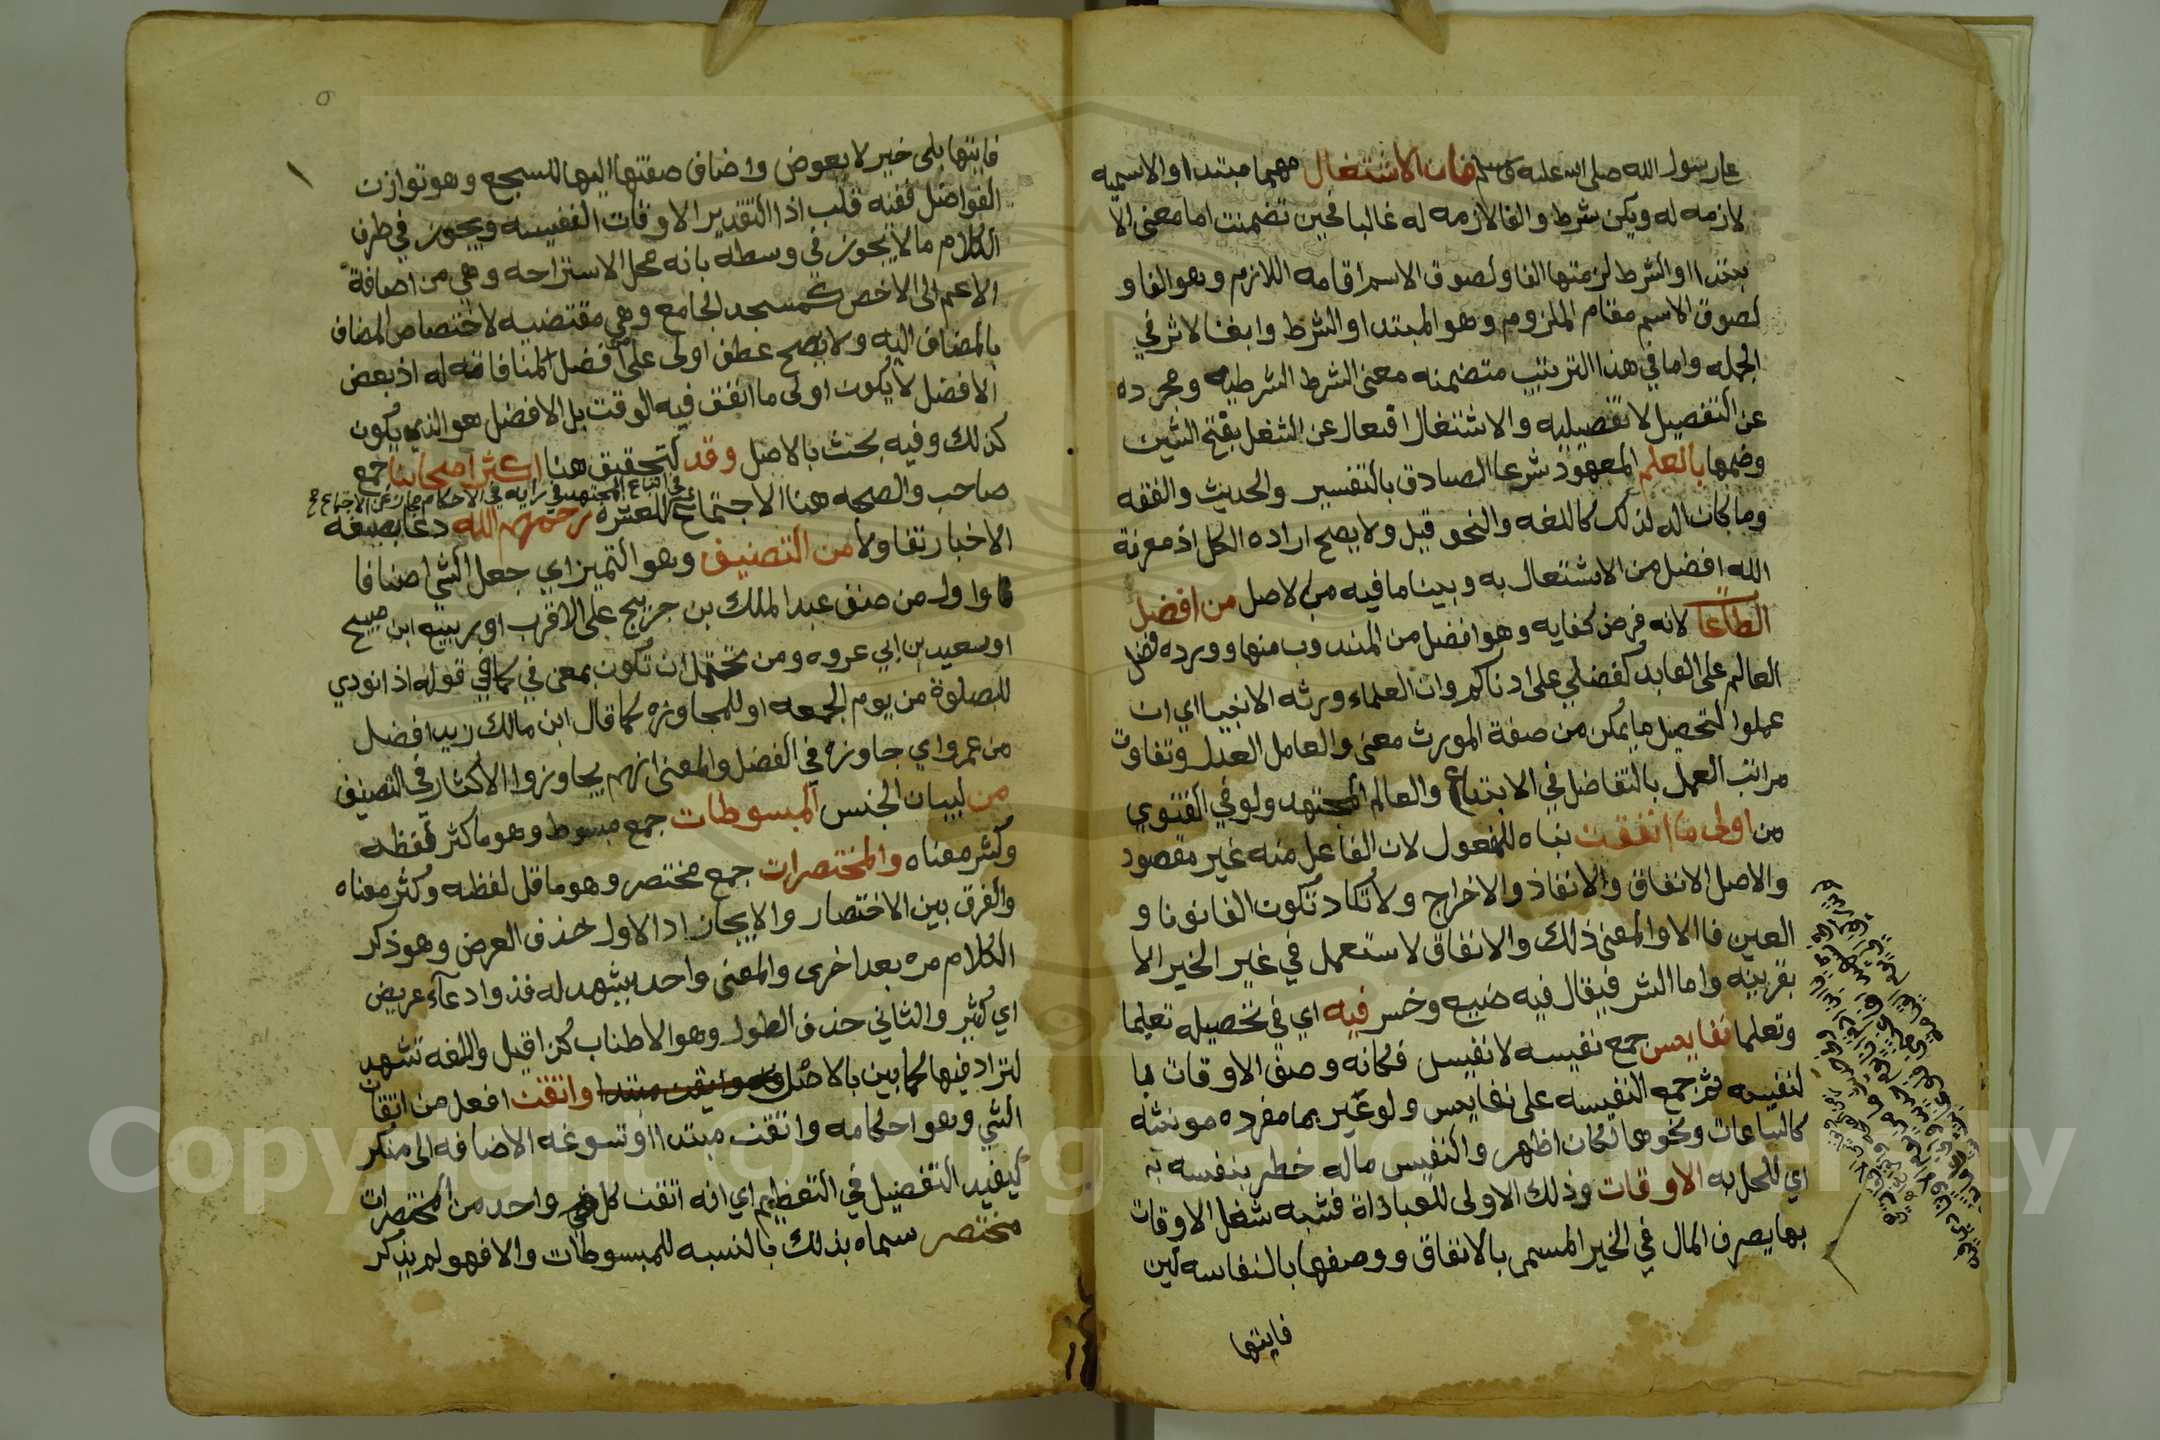 على رسول الله صلى الله عليه وسلم فان الاشتغال مهما مبتدا والاسميه
لازمه له ويكن شرط والفا لازمه له غالبا فحين تضمنت اما معنى الا
بتدا والشرط لزمتها الفا ولصوق الاسم اقامه اللازم وهو الفا و
لصوق الاسم مقام الملزوم وهو المبتدا والشرط وابقا لاثر في
الجمله واما في هذا الترتيب متضمنه معنى الشرط الشرطيه ومجرده
عن التفصيل لا تفصيليه والاشتغال افتعال عن الشغل بفتح الشين
وضمها بالعلم المعهود شرعا الصادق بالتفسير والحديث والفقه
وما كان اله لذلك كاللغه والنحو قيل ولا يصح اراده الكل اذ معرفة
الله افضل من الاشتغال به وبينا ما فيه من الاصل من افضل
الطاعا لانه فرض كفايه وهو افضل من المندوب منها وورده فضل
العالم على العابد كفضلي على ادناكم وان العلماء ورثه الانبيا اي ان
عملوا لتحصيل ما يمكن من صفة المورث معنى والعامل العدل وتفاوت
مراتب العمل بالتفاضل في الابتداع والعالم المجتهد ولو في الفتوي
من اولى ما انفقت بناه للمفعول لان الفاعل منه غير مقصود
والاصل الانفاق والانفاذ والاخراج ولا تكاد تكون الفا نونا و
العين فا الا والمعنى ذلك والانفاق لا ستعمل في غير الخير الا
بقرينه واما الشر فيقال فيه ضيع وخسر فيه اي في تحصيله تعليما
وتعلما نفايس جمع نفيسه لا نفيس فكانه وصف الاوقات بما
لنفيسه ثم جمع النفيسه على نفايس ولو عبر بما مفرده مونثه
كالساعات ونحوها لكان اظهر والنفيس ماله خطر بنفسه به
اي للمحل به الاوقات وذلك الاولى للعباداة فشبه شغل الاوقات
بها يصرف المال في الخير المسمى بالانفاق ووصفها بالنفاسه لين
فايتها
فايتها بلى خير لا يعوض واضاف صفتها اليها للسجع وهو توازن
الفواصل ففنه قلب اذا التقدير الاوقات النفيسه ويجوز في طرف
الكلام ما لا يجوز في وسطه بانه محل الاستراحه وهي من اضافة
الاعم الى الاخص كمسجد الجامع وهي مقتضيه لاختصاص المضاف
بالمضاف اليه ولا يصح عطف اولى على من افضل لمنافاته له اذ بعض
الافضل لا يكون اولى ما انفق فيه الوقت بل الافضل هو الذي يكون
كذلك وفيه بحث بالاصل وقد لتحقيق هنا اكثر اصحابنا جمع
صاحب والصحبه هنا الاجتماع للعشرة رحمهم الله دعا بصيغه
في اتباع المجتهد في رايه في الاحكام مجاز عن الاجتماع
الاخبار تفاولا من التصنيف وهو التميز اي جعل الشي اصنافا
واول من صنف عبد الملك بن جريج على الاقرب او ربيع ابن صبيح
او سعيد بن ابي عروه ومن تحتمل ان تكون بمعنى في كما في قوله اذا نودي
للصلوة من يوم الجمعه او للمجاوزه كما قال ابن مالك زيد افضل
من عمرو اي جاوزه في الفضل والمعنى انهم يجاوزوا الاكثار في التصنيف
من لبيان الجنس المبسوطات جمع مبسوط وهو ما كثر لفظه
وكثر معناه والمختصرات جمع مختصر وهو ما قل لفظه وكثر معناه
والفرق بين الاختصار والايجاز اذ الاول حذف العرض وهو ذكر
الكلام مره بعد اخرى والمعنى واحد يشهد له فذو ادعاء عريض
اي كثير والثاني حذف الطول وهو الاطناب كذا قيل واللغه تشهد
لترادفيها كما بين بالاصل واتقنت افعل من اتقان
الشي وهو احكامه واتقن مبتدا وتسوغه الاضافه الى منكر
ليفيد التفضيل في التعظيم اي انه اتقن كل واحد من المختصرات
مختصر سماه بذلك بالنسبه للمبسوطات والا فهو لم يذكر